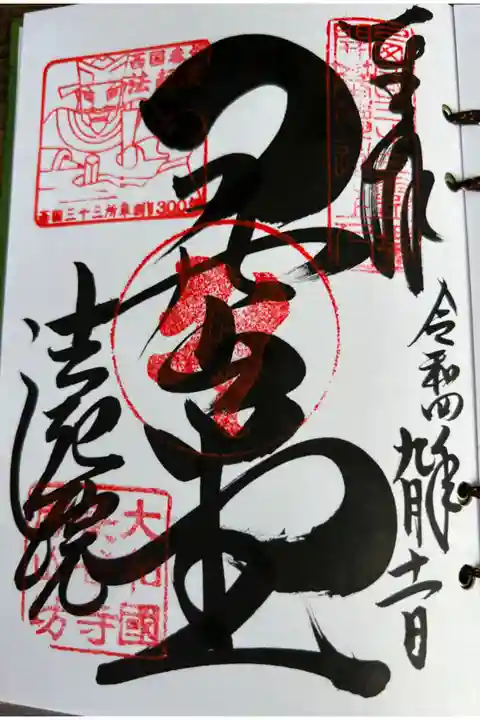 奉拝
令和四年九月十一日
開山堂
西国番外
法起院
西国三十三所草創1300年
法起院
大和國
長谷寺
開山坊